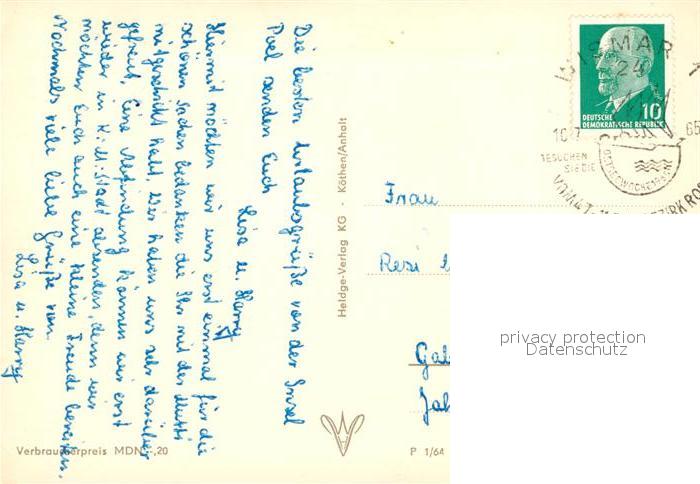 Die besten Urlaubsgrüße von der Insel
Poel senden Euch
Lisa u. Harry
Hiermit möchten wir uns erst einmal für die
schönen Sachen bedanken die Ihr mit der Mutti
mitgeschickt habt. Wir haben uns sehr darüber
gefreut. Eine Verbindung können wir erst
wieder in K.-M.-Stadt absenden, denn wir
möchten Euch auch eine kleine Freude bereiten.
Nochmals viele liebe Grüße von
Lisa u. Harry
Verbraucherpreis MDN -,20
Heldge-Verlag KG · Köthen/Anhalt
P 1/64
WISMAR 1
24
10
65
BESUCHEN
SIE DIE
OSTSEEWOCHE
BEZIRK ROS
10
DEUTSCHE
DEMOKRATISCHE REPUBLIK
Frau
Resi
privacy protection
Datenschutz